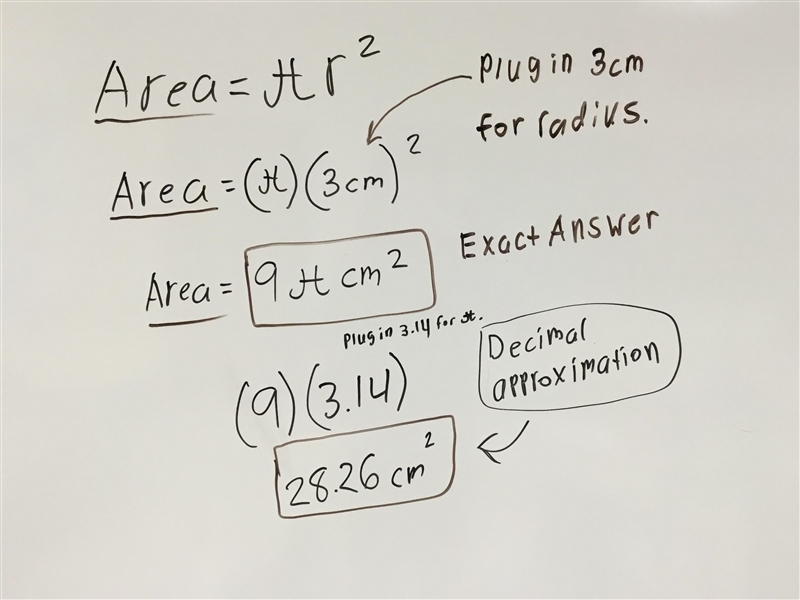 Area = πr²
Plug in 3cm
for radius.
Area = (π)(3cm)²
Area = 9π cm²
Exact Answer
Plug in 3.14 for π.
(9)(3.14)
Decimal
approximation
28.26 cm²